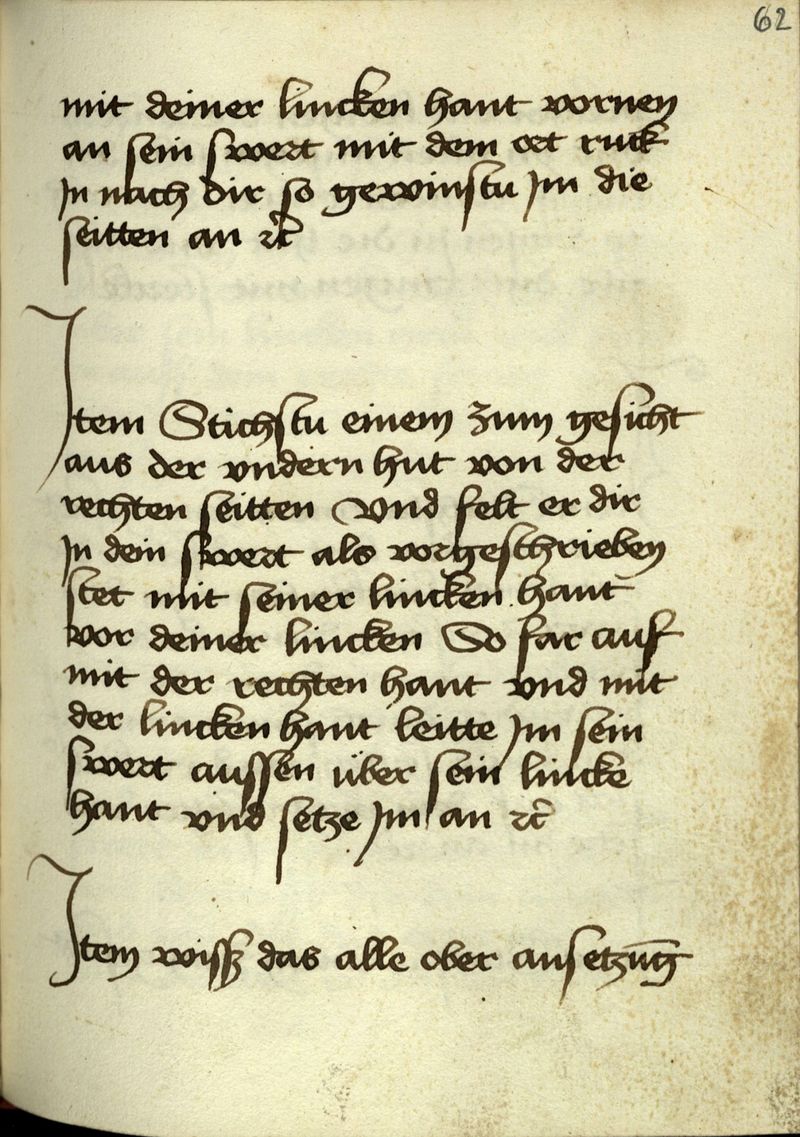 62
mit deiner lincken hant vornen
an sein swert mit dem ort ruck
Jn nach dir so gewinstu Jm die
seitten an ꝛc̃
Jtem Stichstu einem zum gesicht
aus der vndern hut von der
rechten seitten Vnd felt er dir
Jn dein swert als vorgeschrieben
stet mit seiner lincken hant
vor deiner lincken So far auf
mit der rechten hant vnd mit
der lincken hant leitte Jm sein
swert aussen über sein lincke
hant vnd setze Jm an ꝛc̃
Jtem wisß das alle ober ansetzūg